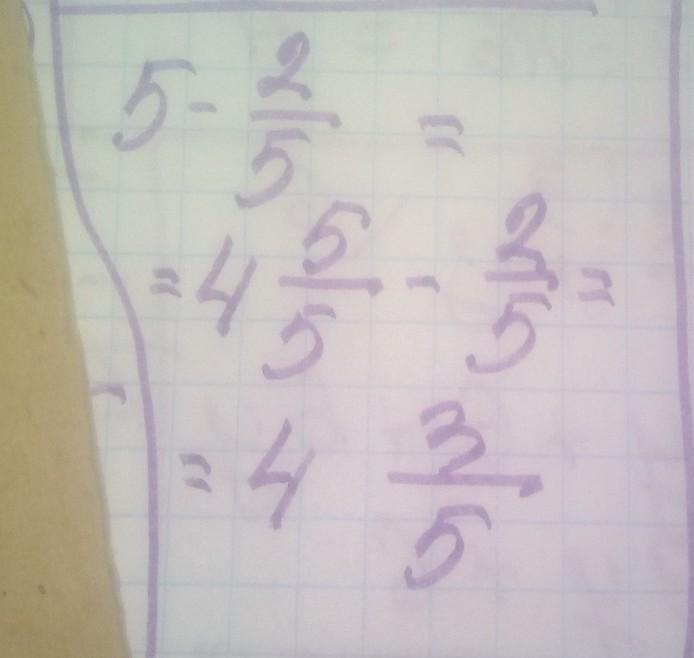 5 - 2/5 =
= 4 5/5 - 2/5 =
= 4 3/5